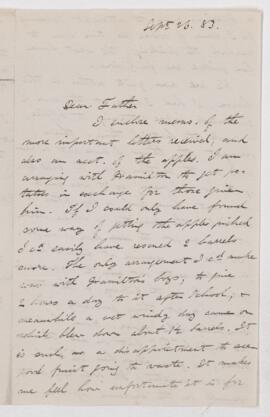 Sept 26. 83.
Dear Father
I enclose memo. of the
more important letters received, and
also an acct. of the apples. I am
arranging with Hamilton to get po-
tatoes in exchange for those given
him. If I could only have found
some way of getting the apples picked
I cd. easily have rescued 2 barrels
more. The only arrangement I cd. make
was with Hamilton's boys, to give
2 hours a day to it after school; &
meanwhile a wet windy day came on
which blew down about 1½ barrels. It
is such a disappointment to see
good fruit going to waste. It makes
me feel how unfortunate it is for